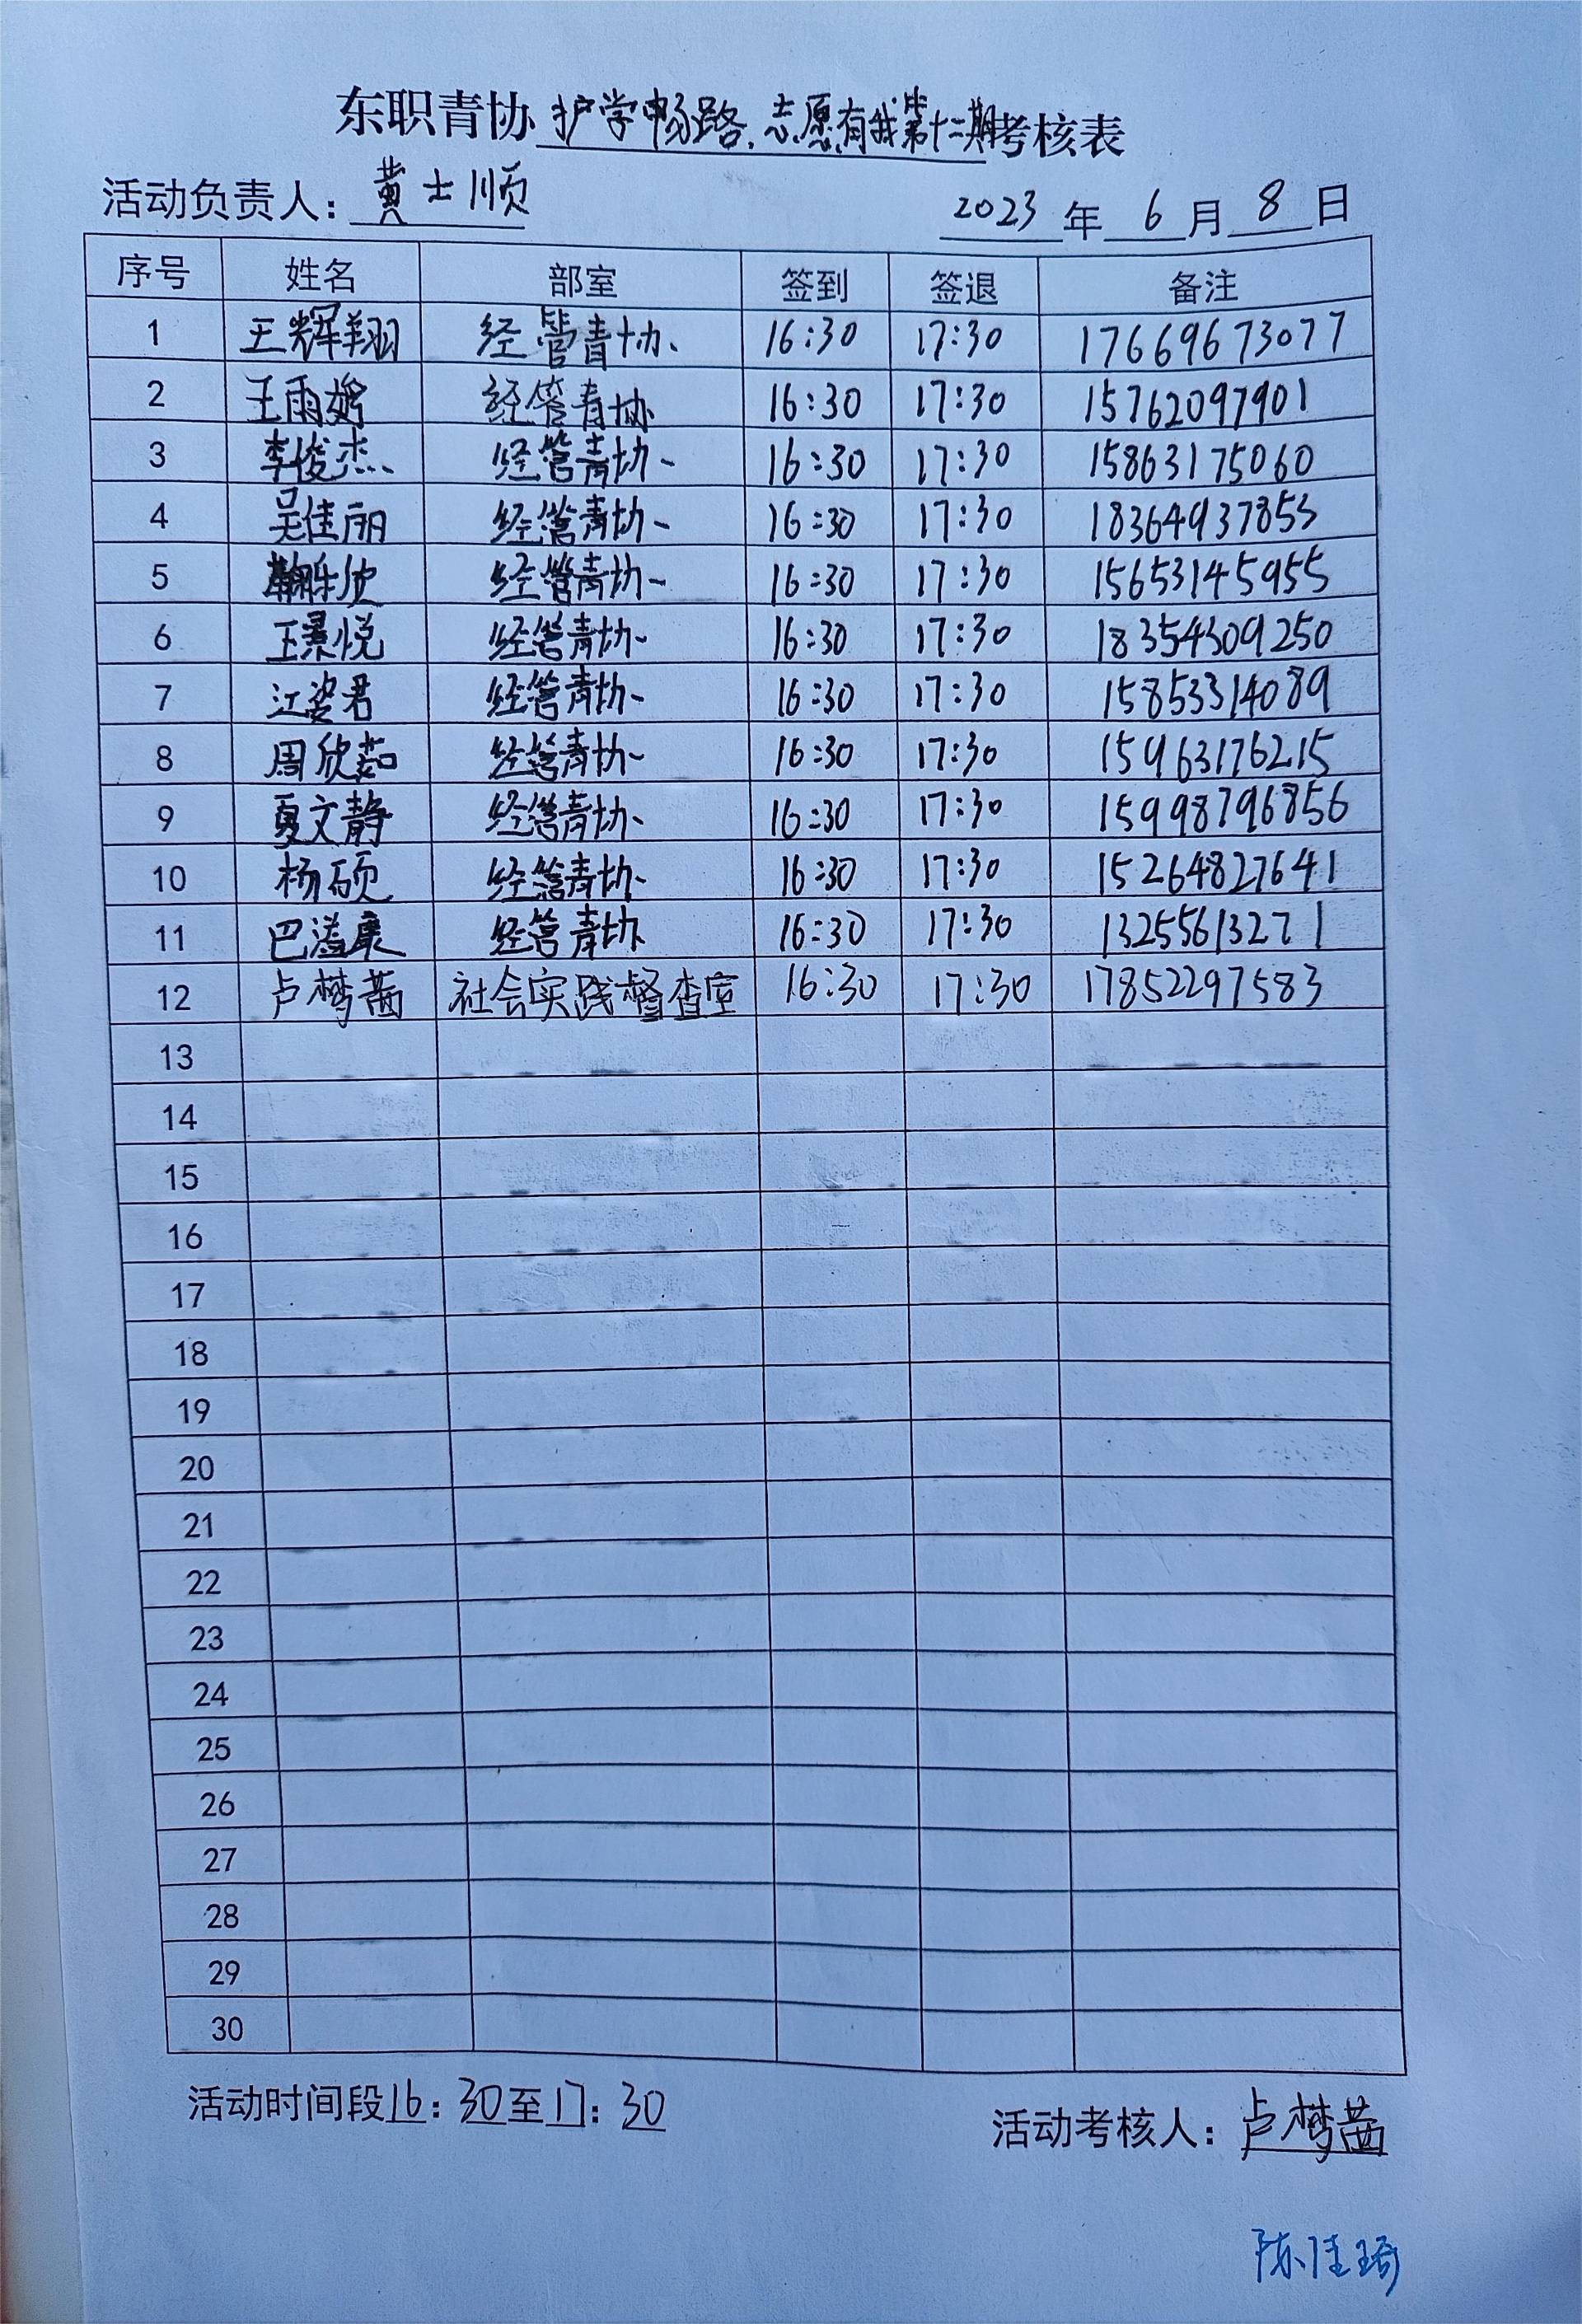 东职青协护学畅路、志愿有我第十二期考核表
活动负责人：黄士顺 2023年6月8日
序号 姓名 部室 签到 签退 备注
1 王辉翔 经管青协 16:30 17:30 17669673077
2 王雨婷 经管青协 16:30 17:30 15762097901
3 李俊杰 经管青协 16:30 17:30 15863175060
4 吴佳丽 经管青协 16:30 17:30 18364937853
5 经管青协 16:30 17:30 15653145955
6 王景悦 经管青协 16:30 17:30 18354309250
7 江姿君 经管青协 16:30 17:30 15853314089
8 周欣茹 经管青协 16:30 17:30 15963176215
9 夏文静 经管青协 16:30 17:30 15998796856
10 杨硕 经管青协 16:30 17:30 15264827641
11 巴溢康 经管青协 16:30 17:30 13255613271
12 卢梦茜 社会实践督查室 16:30 17:30 17852297583
13
14
15
16
17
18
19
20
21
22
23
24
25
26
27
28
29
30
活动时间段16：30至17：30 活动考核人：卢梦茜
陈佳琦